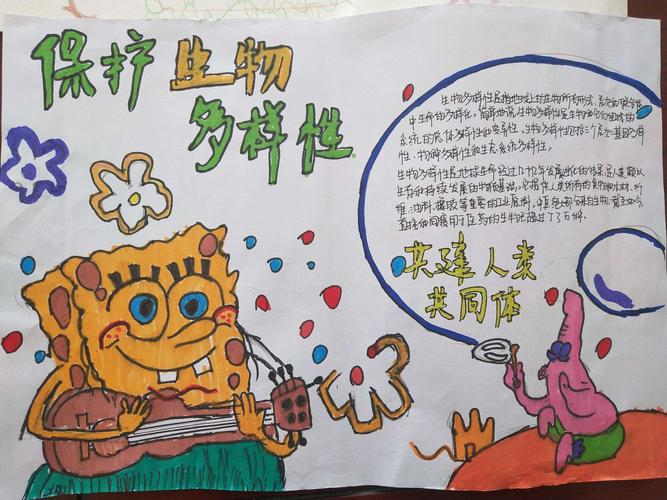 保护生物
多样性
生物多样性是指地球上的生物所有形式、层次和联合体
中生命的多样化。简单地说,生物多样性是生物和它们组成的
系统的总体多样性和变异性。生物多样性包括三个层次基因多样
性、物种多样性和生态系统多样性。
生物多样性是地球生命经过几十亿年发展进化的结果是人类赖以
生存和持续发展的物质基础。它提供人类所有的食物和木材、纤
维、油料、橡胶等重要的工业原料。中医药绝大部分来自生物,
直接和间接用于医药的生物已超过了3万种。
共建人类
共同体